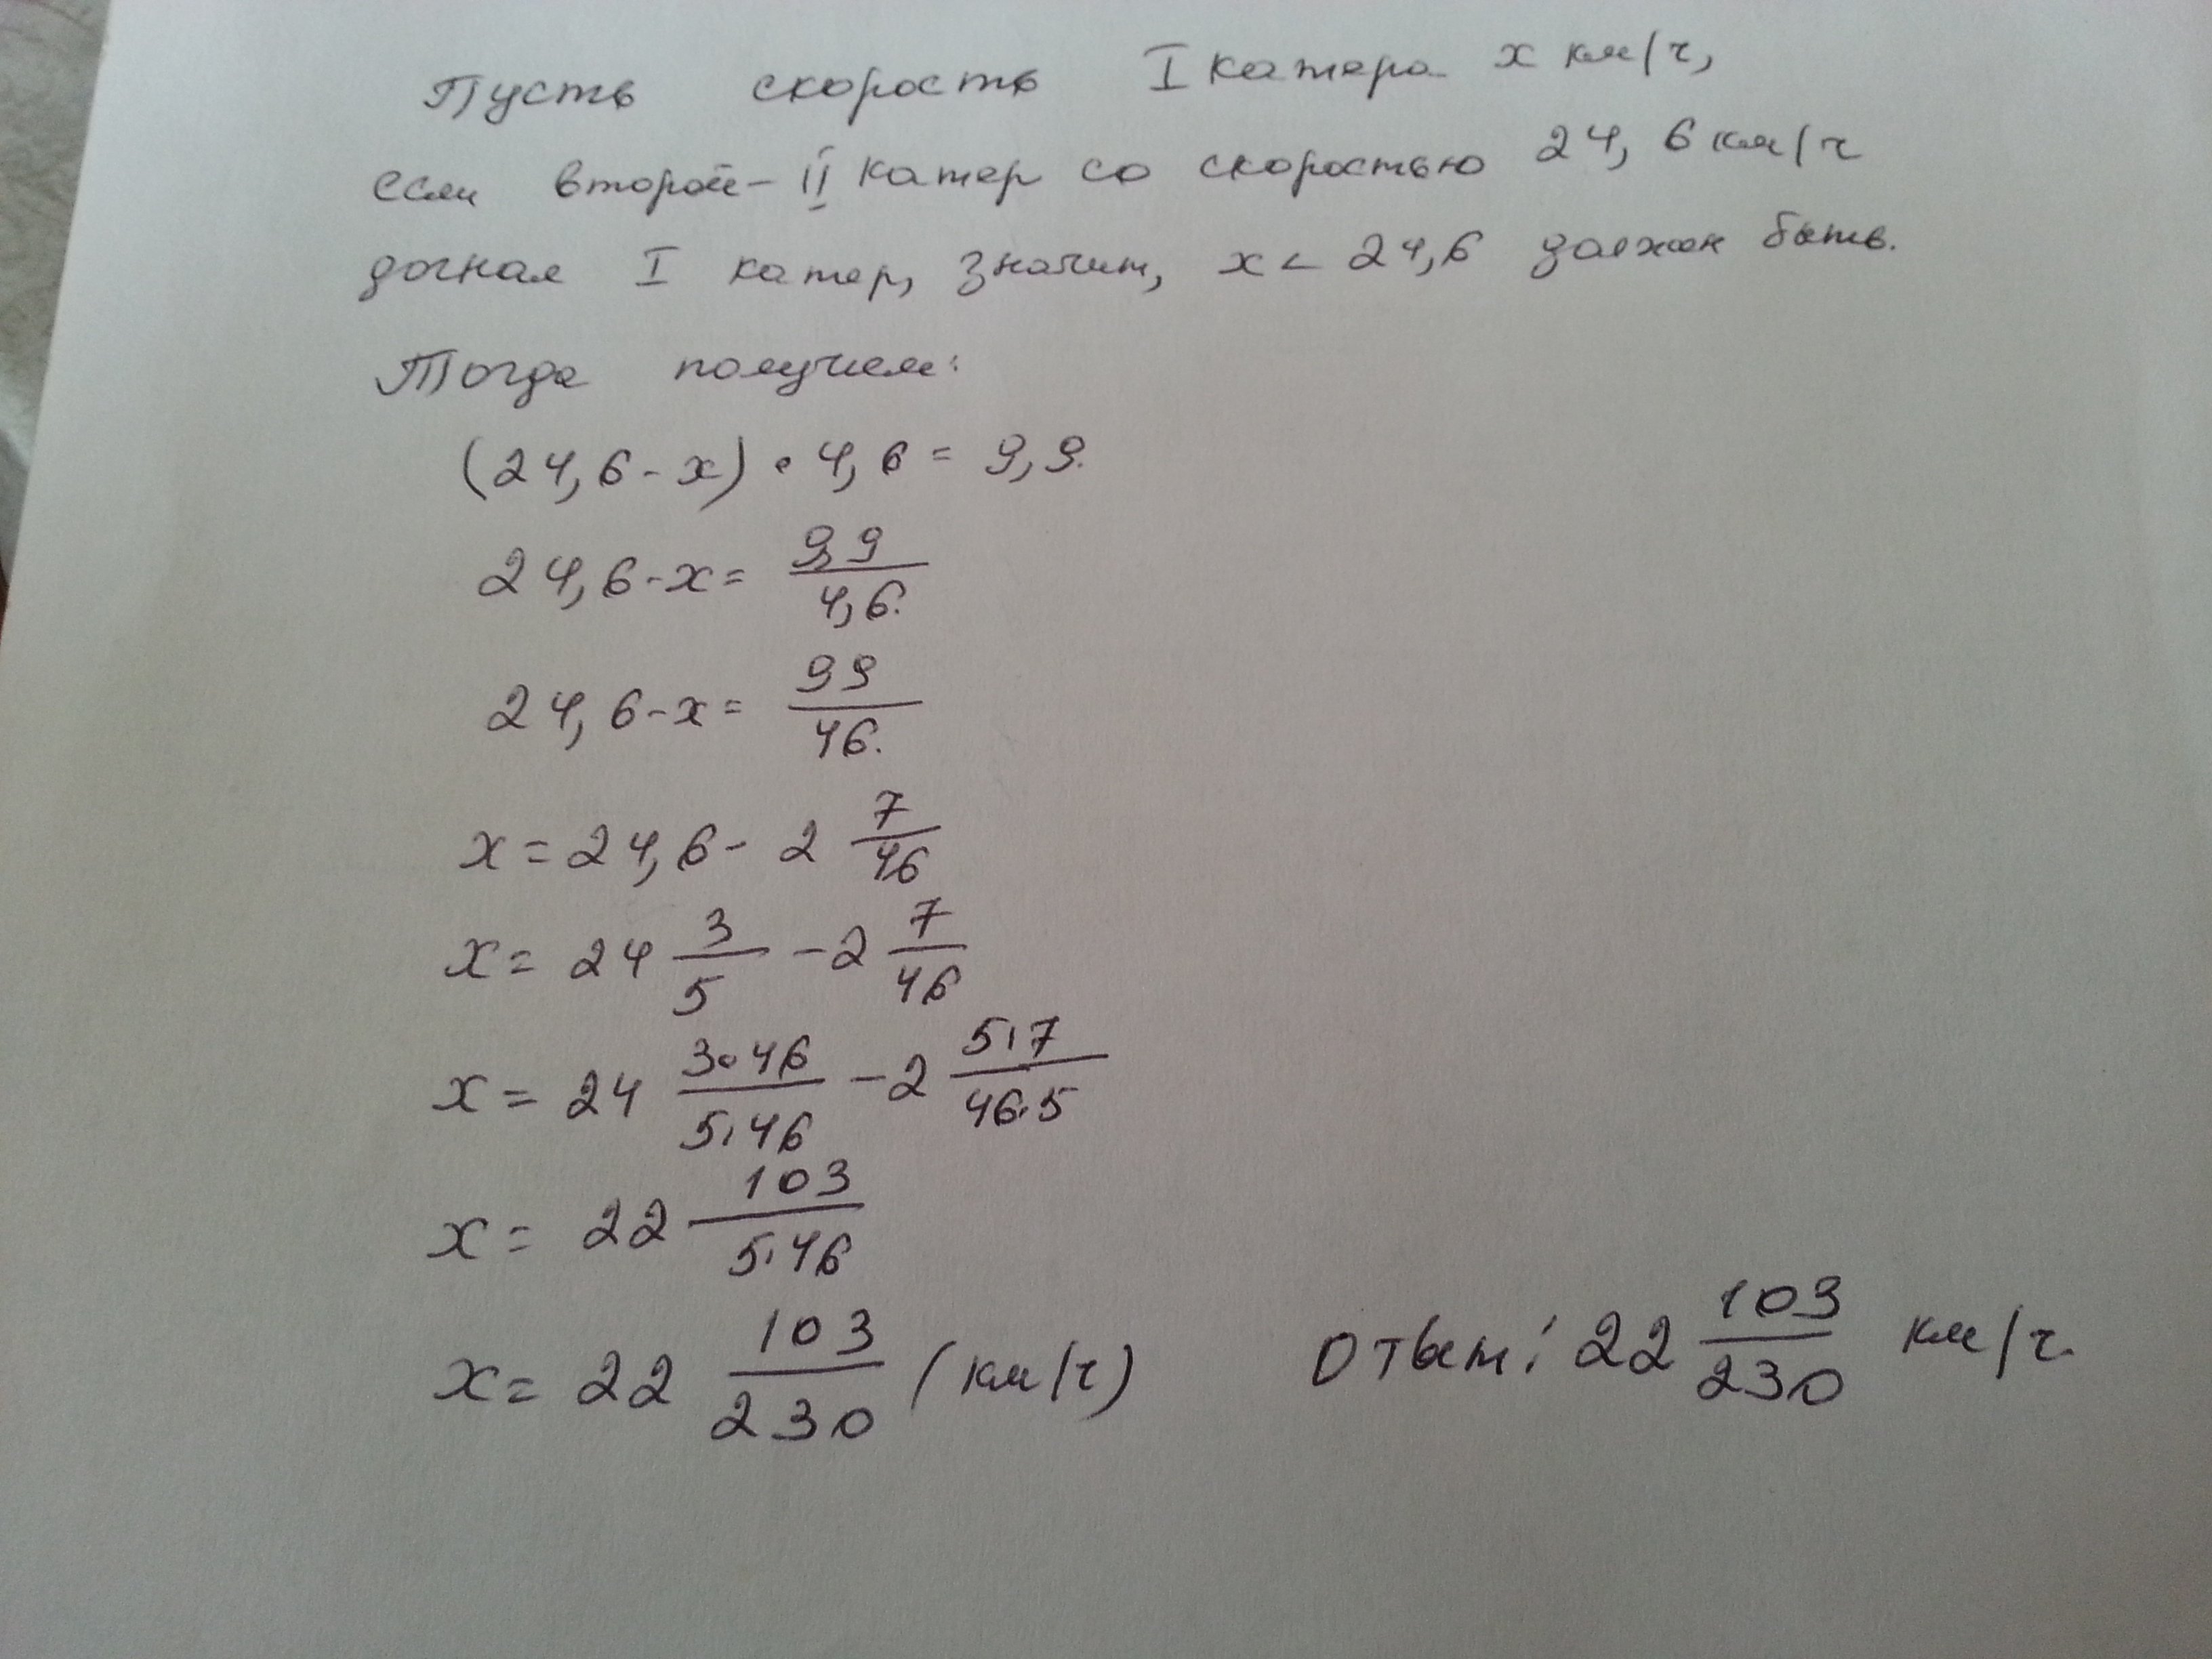 Пусть скорость I катера x км/ч,
если второй - II катер со скоростью 24,6 км/ч
догнал I катер, значит, x < 24,6 должен быть.
Тогда получаем:
(24,6 - x) • 4,6 = 9,9.
24,6 - x = 9,9/4,6.
24,6 - x = 99/46.
x = 24,6 - 2 7/46
x = 24 3/5 - 2 7/46
x = 24 3•46/5•46 - 2 5•7/46•5
x = 22 103/5•46
x = 22 103/230 (км/ч) Ответ: 22 103/230 км/ч.